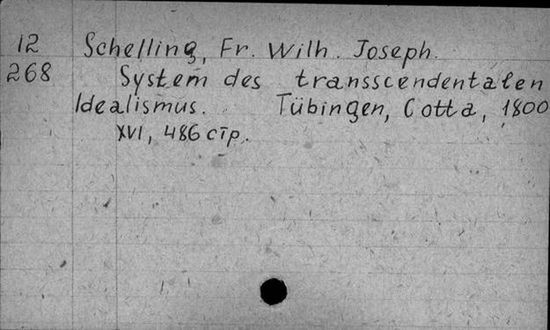 12 Schelling, Fr. Wilh. Joseph.
268 System des transscendentalen
Idealismus. Tübingen, Cotta, 1800
XVI, 486 стр.